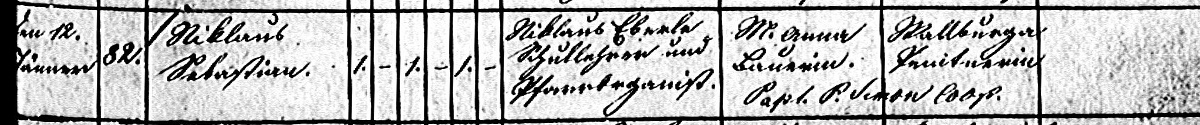 den 12.
Jänner
82.
Niklaus
Sebastian.
1. – 1. – 1. –
Niklaus Eberle
Schullehrer und
Pfarrorganist.
M. Anna
Bauerin.
Wallburga
Bapt. P. Simon Coop.